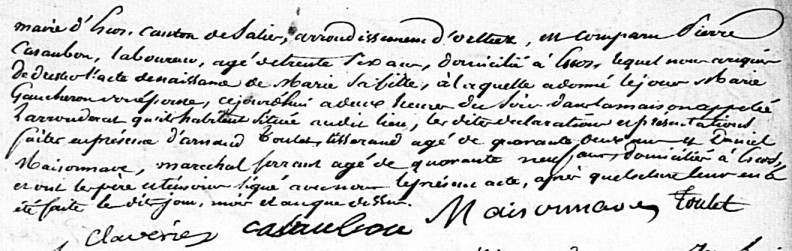 maire d'hors, canton de Salies, arrondissement d'orthez, est comparu Pierre
Casaubon, laboureur, agé de trente six ans, domicilié à hors, lequel nous a requis
de dresser l'acte de naissance de Marie sa fille, à laquelle a donné le jour Marie
Gaucheron son épouse, cejourdhui a deux heures du soir dans la maison appelée
Larrouderat qu'ils habitent située audit lieu, les dites declaration et présentation
faites en présence d'arnaud Toulet, tisserand agé de quarante deux ans et Daniel
Maisonnave, marechal ferrant agé de quarante neuf ans, domiciliés à hors,
et ont le père et témoins signé avec nous le présent acte, après que lecture leur en a
été faite le dit jour, mois et an que dessus.
Claverie Casaubon Maisonnave Toulet